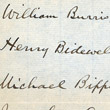 William Burris
Henry Bidewel
Michael Bipp